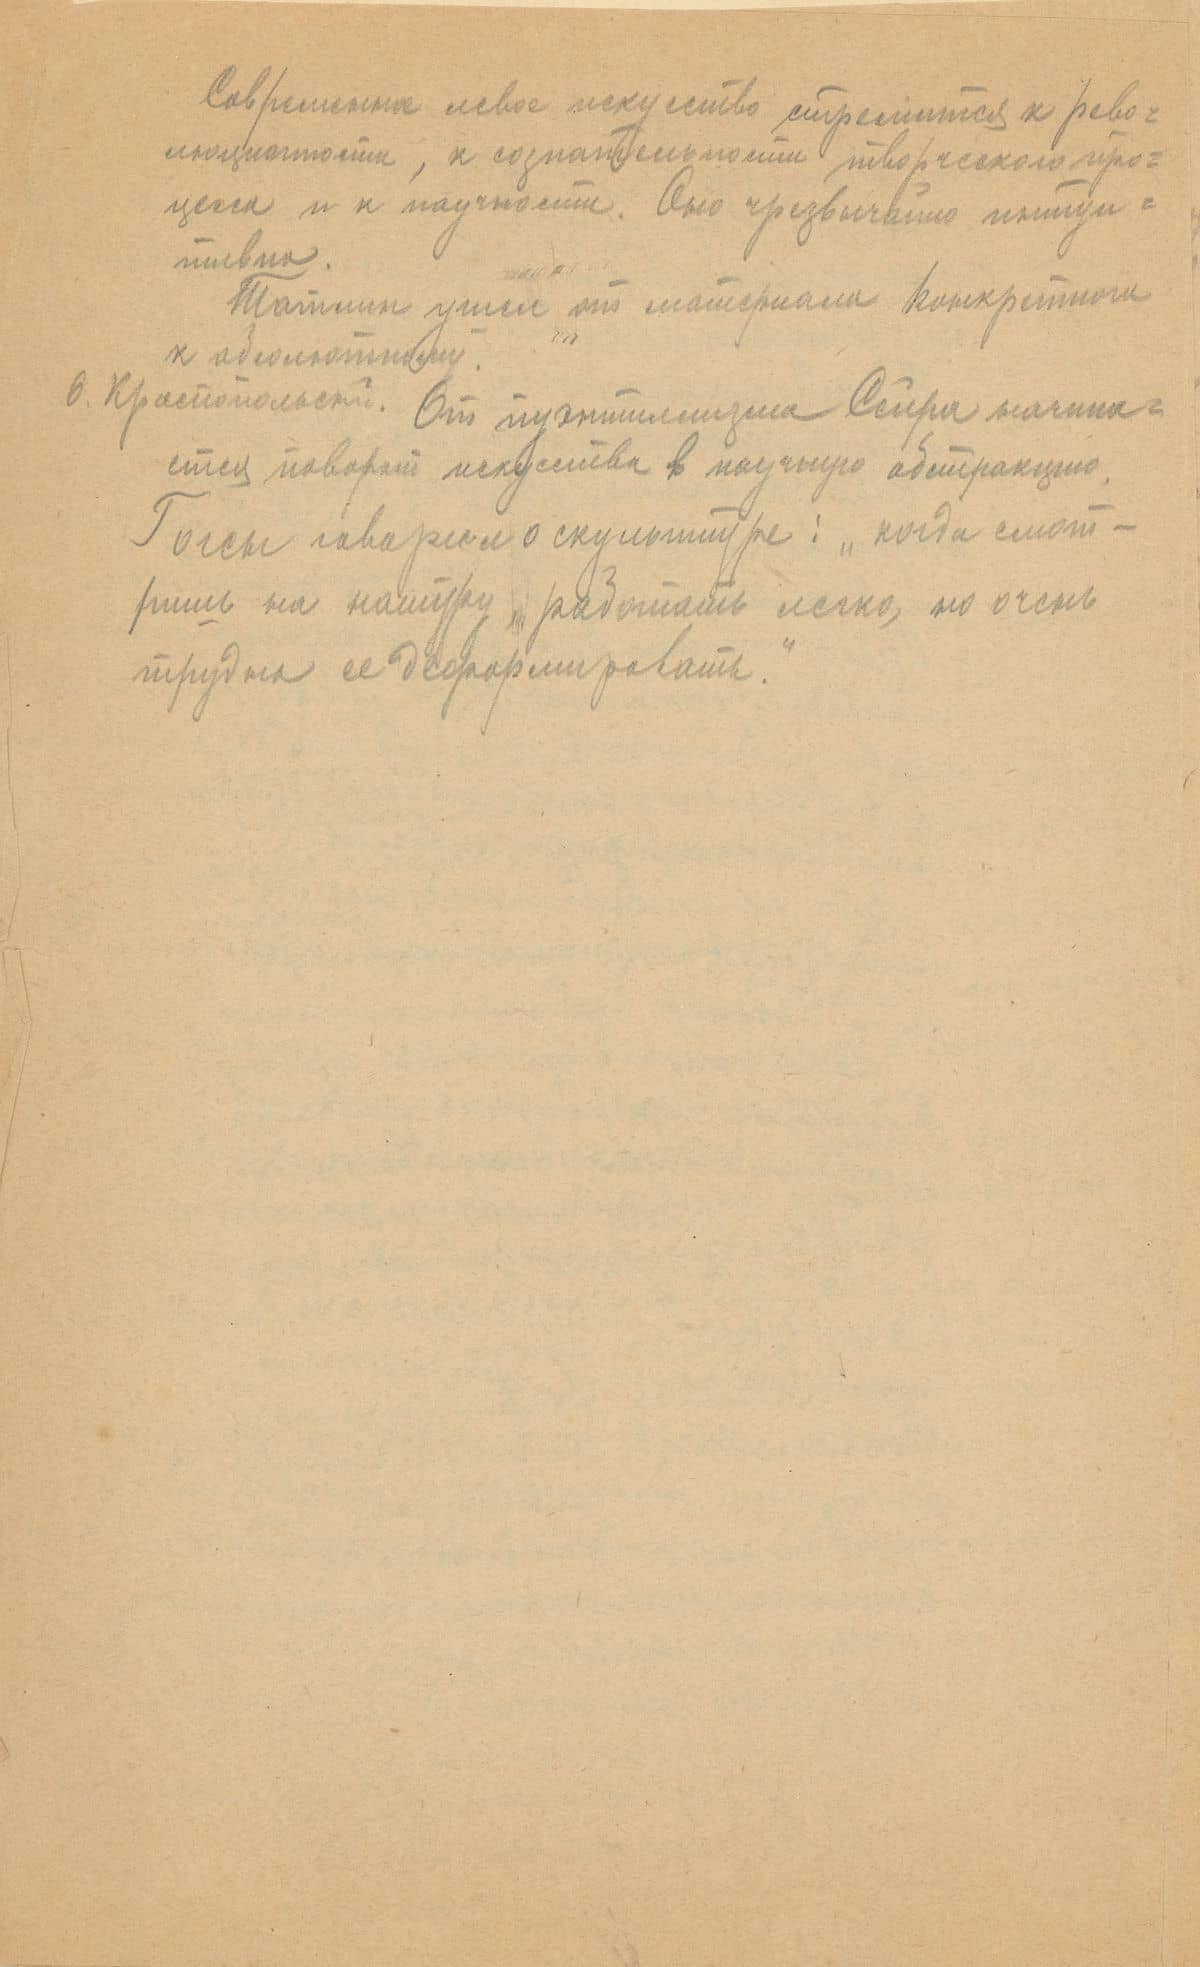 Современное левое искусство стремится к рево=
люционности, к сознательности творческого про=
цесса и к научности. Оно чрезвычайно интуи=
тивно.
Татлин ушел от материала конкретного
к абсолютному.
О. Краснопольский. От пуэнтиллизма Сейра начина=
ется поворот искусства в научную абстракцию.
говорил о скульптуре: „когда смот-
ришь на натуру работать легко, но очень
трудно ее деформировать."